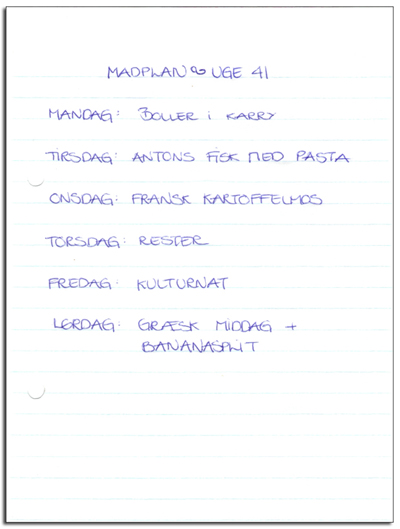 MADPLAN UGE 41
MANDAG: BOLLER I KARRY
TIRSDAG: ANTONS FISK MED PASTA
ONSDAG: FRANSK KARTOFFELMOS
TORSDAG: RESTER
FREDAG: KULTURNAT
LØRDAG: GRÆSK MIDDAG +
BANANASPLIT